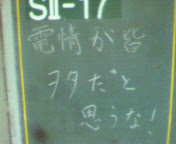 SⅡ-17
電情が皆
ヲタだと
思うな!